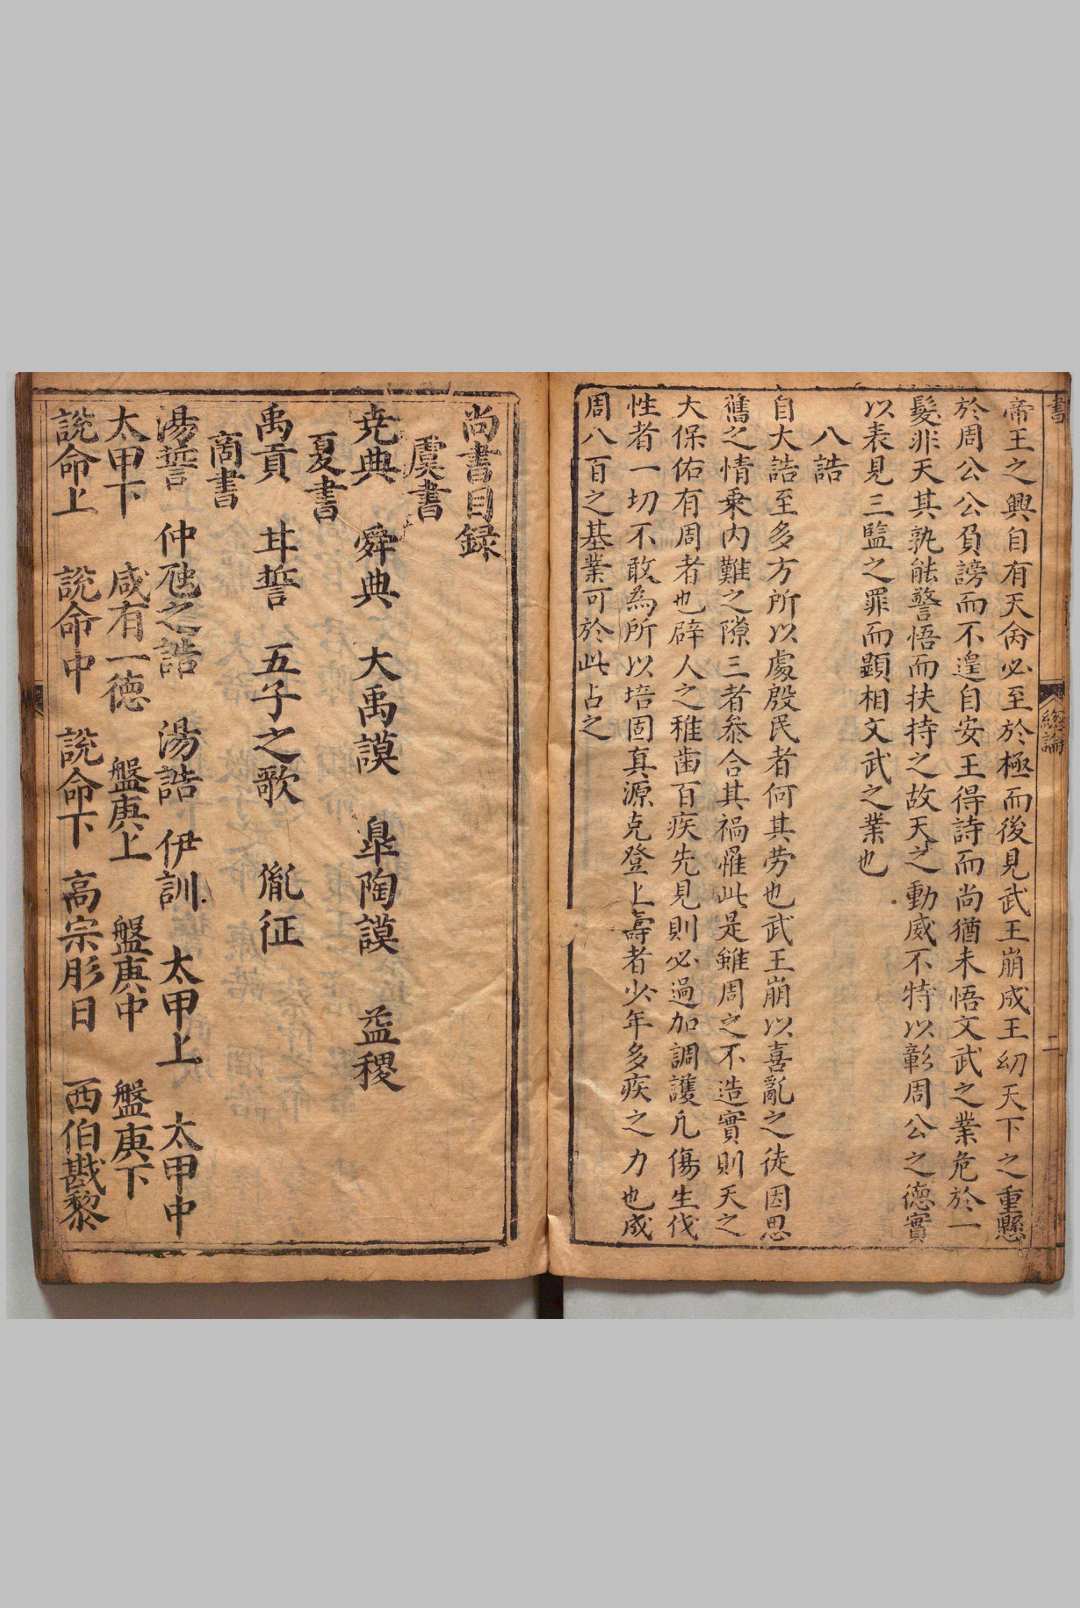 書
總論
二
帝王之興自有天命必至於極而後見武王崩成王幼天下之重懸
於周公公負謗而不遑自安王得詩而尚猶未悟文武之業危於一
髮非天其孰能警悟而扶持之故天之動威不特以彰周公之德實
以表見三監之罪而顕相文武之業也
八誥
自大誥至多方所以處殷民者何其劳也武王崩以喜亂之徒因思
舊之情乗内難之隙三者叅合其禍惟此是雖周之不造實則天之
大保佑有周者也辟人之稚歯百疾先見則必過加調護凢傷生伐
性者一切不敢為所以培固真源克登上壽者少年多疾之力也成
周八百之基業可於此占之
尚書目録
虞書
尭典 舜典 大禹謨 皐陶謨 益稷
夏書
禹貢 甘誓 五子之歌 胤征
商書
湯誓 仲虺之誥 湯誥 伊訓 太甲上 太甲中
太甲下 咸有一德 盤庚上 盤庚中 盤庚下
說命上 說命中 說命下 高宗肜日 西伯戡黎